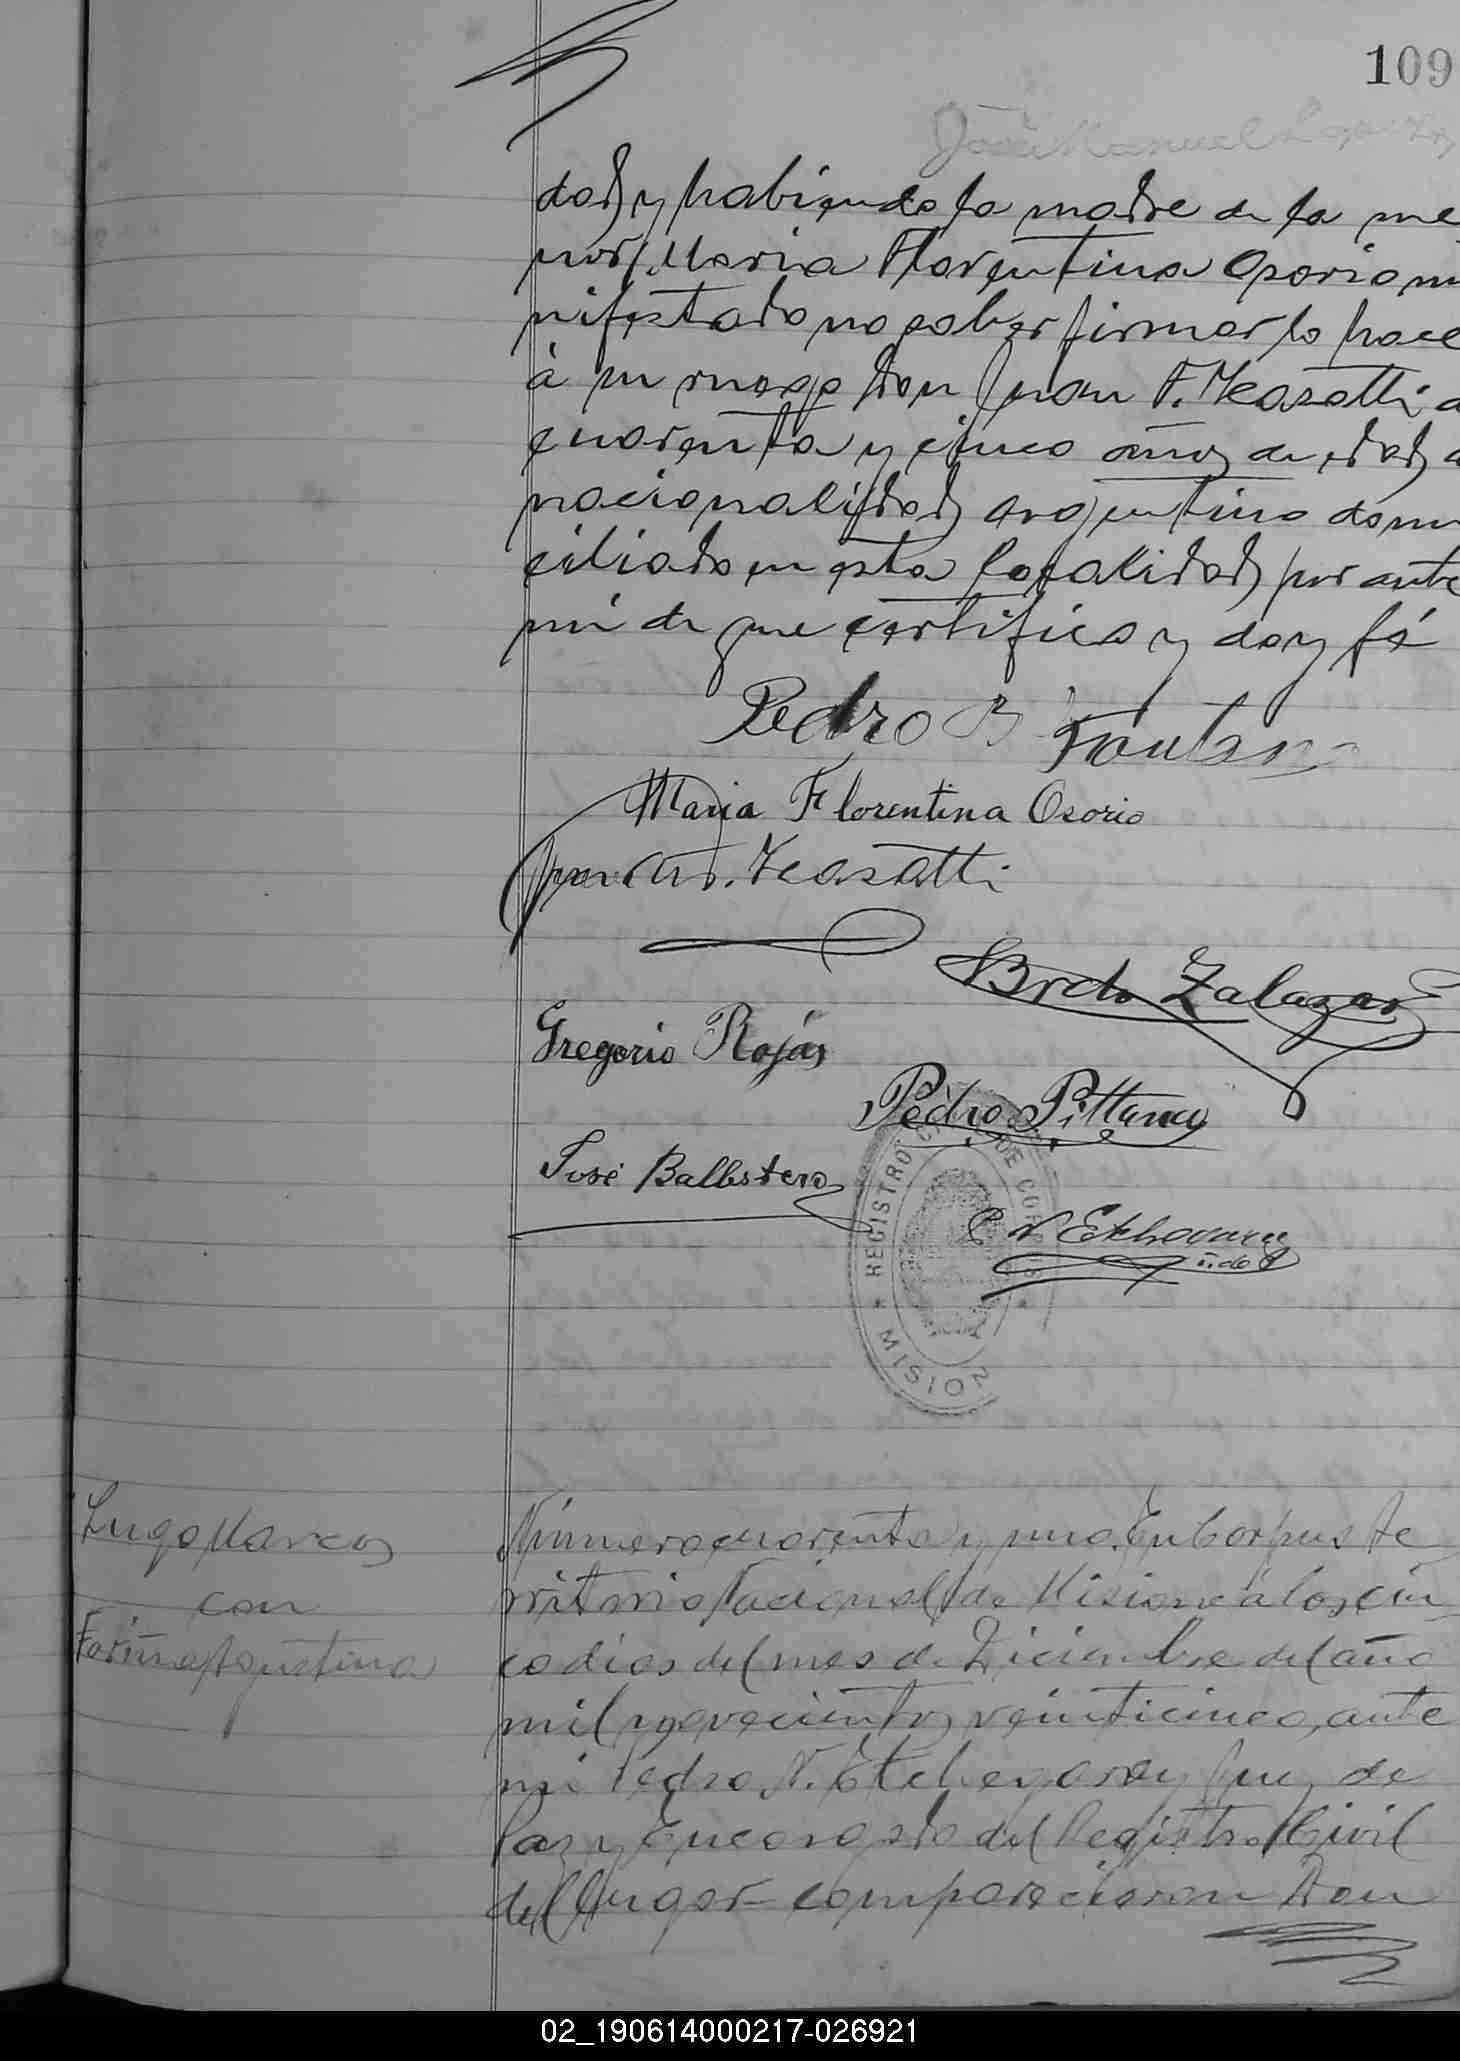 109
José Manuel
dad y habiendo la madre de la me
nor Maria Florentina Osorio ma
nifestado no saber firmar lo hace
á su ruego Don Juan F. Kasatti d
cuarenta y cinco años de edad d
nacionalidad argentino domi
ciliado en esta localidad por ante
mi de que certifico y doy fé
Pedro B Fontana
Maria Florentina Osorio
Kasatti
Brdo Zalazar
Gregorio Rojas
Pedro Pittana
José Ballestero
P N Etchegaray
REGISTRO DE CORPUS
MISION
Lugo Marcos
con
Fariña Agustina
Número cuarenta y uno. En Corpus te
rritorio Nacional de Misiones á los cin
co dias del mes de Diciembre del año
mil novecientos veinticinco, ante
mi Pedro N. Etchegaray Juez de
Paz y Encargado del Registro Civil
del lugar comparecieron Don
02_190614000217-026921